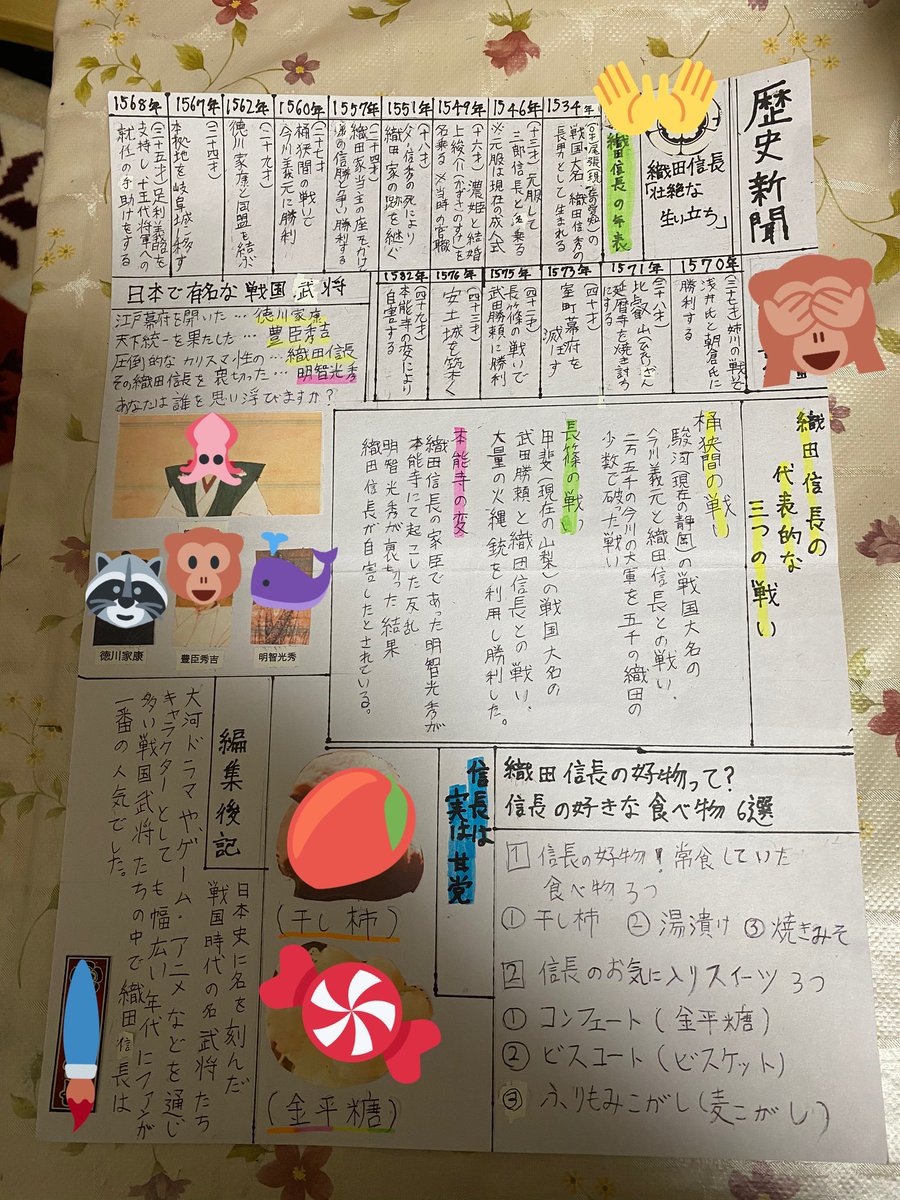 歴史新聞
織田信長
「壮絶な
生い立ち」
織田信長の年表
1534年
尾張(現在の愛知)の
戦国大名・織田信秀の
長男として生まれる
1546年
(十三才)元服して
三郎信長と名乗る
※元服は現在の成人式
1549年
(十六才)濃姫と結婚
上総介(かずさのすけ)を
名乗る ※当時の官職
1551年
(十八才)
父・信秀の死により
織田家の跡を継ぐ
1557年
(二十四才)
織田家当主の座をかけ
弟の信勝と争い勝利する
1560年
(二十七才)
桶狭間の戦いで
今川義元に勝利
1562年
(二十九才)
徳川家康と同盟を結ぶ
1567年
(三十四才)
本拠地を岐阜城へ移す
1568年
(三十五才)足利義昭を
支持し、十五代将軍への
就任の手助けをする
1570年
(三十七才)姉川の戦いで
浅井氏と朝倉氏に
勝利する
1571年
(三十八才)
比叡山(ひえいざん)
延暦寺を焼き討ち
にする
1573年
(四十才)
室町幕府を
滅ぼす
1575年
(四十二才)
長篠の戦いで
武田勝頼に勝利
1576年
(四十三才)
安土城を築く
1582年
(四十九才)
本能寺の変により
自害する
日本で有名な戦国武将
江戸幕府を開いた…徳川家康
天下統一を果たした…豊臣秀吉
圧倒的なカリスマ性の…織田信長
その織田信長を裏切った…明智光秀
あなたは誰を思い浮びますか?
徳川家康
豊臣秀吉
明智光秀
織田信長の
代表的な
三つの戦い
桶狭間の戦い
駿河(現在の静岡)の戦国大名の
今川義元と織田信長との戦い、
二万五千の今川の大軍を五千の織田の
少数で破った戦い
長篠の戦い
甲斐(現在の山梨)の戦国大名の
武田勝頼と織田信長との戦い、
大量の火縄銃を利用し勝利した。
本能寺の変
織田信長の家臣であった明智光秀が
本能寺にて起こした反乱
明智光秀が裏切った結果
織田信長が自害したとされている。
織田信長の好物って?
信長の好きな食べ物6選
1 信長の好物!常食していた
食べ物3つ
①干し柿 ②湯漬け ③焼きみそ
2 信長のお気に入りスイーツ3つ
①コンフェート(金平糖)
②ビスコート(ビスケット)
③ふりもみこがし(麦こがし)
信長は
実は甘党
(干し柿)
(金平糖)
編集後記
日本史に名を刻んだ
戦国時代の名武将たち
大河ドラマや、ゲーム・アニメなどを通じ
キャラクターとしても幅広い年代にファンが
多い戦国武将たちの中で織田信長は
一番の人気でした。